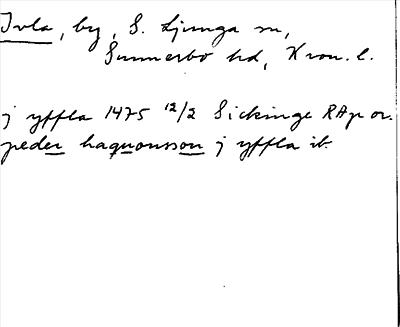 Ivla, by, S. Ljunga sn,
Sunnerbo hd, Kron. l.
j yffla 1475 12/2 Sickinge RAp or.
peder haquonsson j yffla ib.